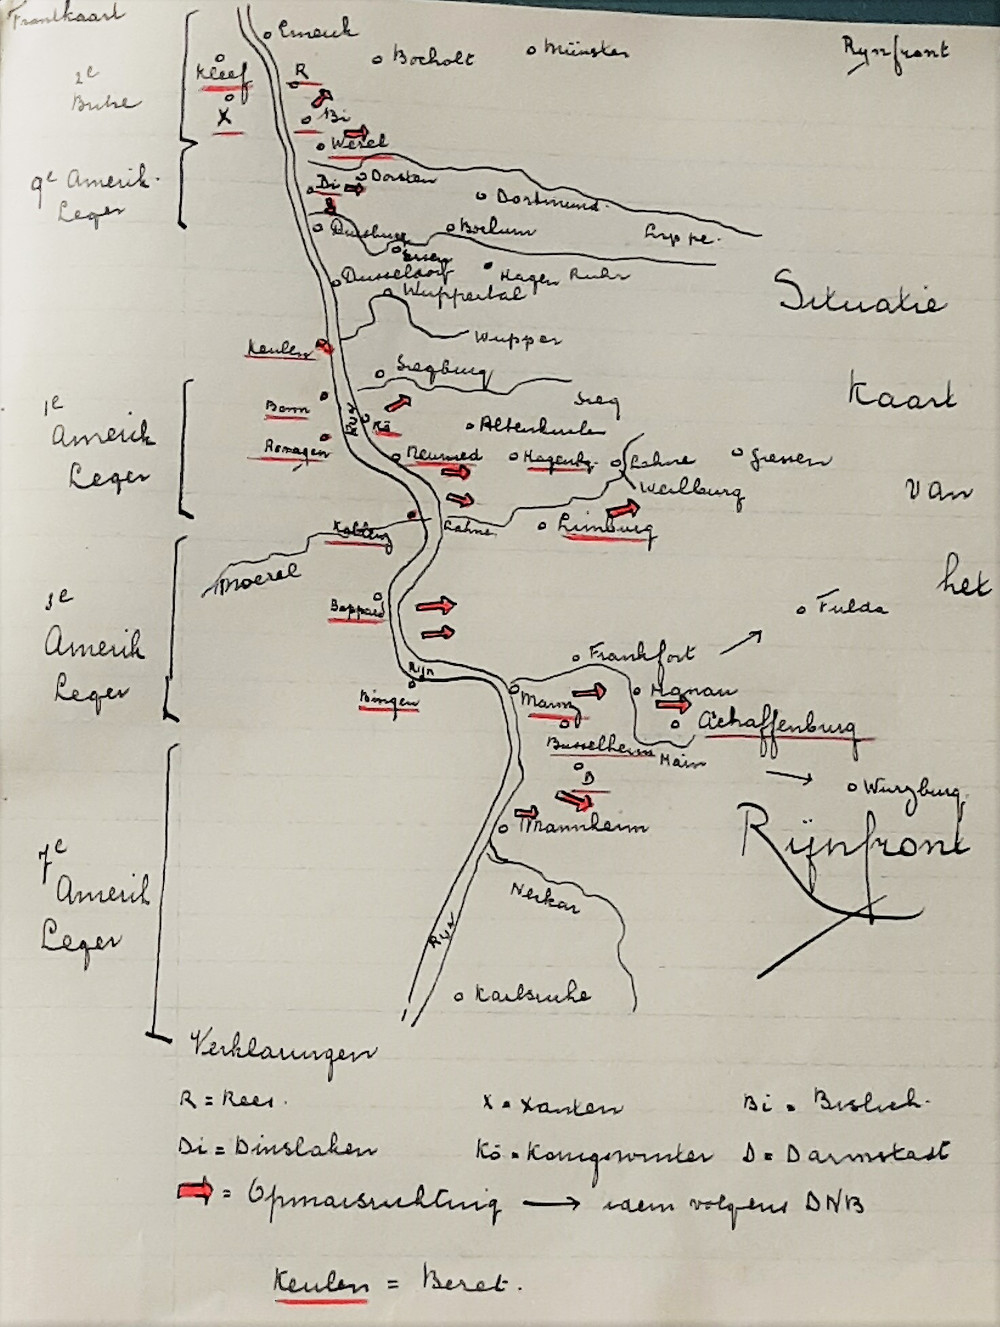 Frontkaart
Rynfront
Emerik
Bocholt
Münster
Kleef
R
X
Bi
Wesel
2e
9e Amerik.
Leger
Di
Dorsten
Dortmund.
Lippe.
Duisburg
Bochum
Essen
Dusseldorf
Hagen
Ruhr
Wuppertal
Wupper
Situatie
Kaart
van
het
Rijnfront
Keulen
Siegburg
Sieg
Bonn
Ryn
Kö
Altenkirchen
1e
Amerik
Leger
Remagen
Neuwied
Lahne
Giessen
Weilburg
Limburg
Koblenz
Lahne
Moezel
3e
Amerik
Leger
Boppard
Fulda
Frankfort
Rijn
Bingen
Mainz
Hanau
Achaffenburg
Russelheim
Main
D
Wurzburg
Mannheim
7e
Amerik
Leger
Nerkar
Ryn
Karlsruhe
Verklaringen
R = Rees.
X = Xanten
Bi = Bislich.
Di = Dinslaken
Kö = Konigswinter
D = Darmstadt
= Opmarsrichting
idem volgens DNB
Keulen = Bezet.